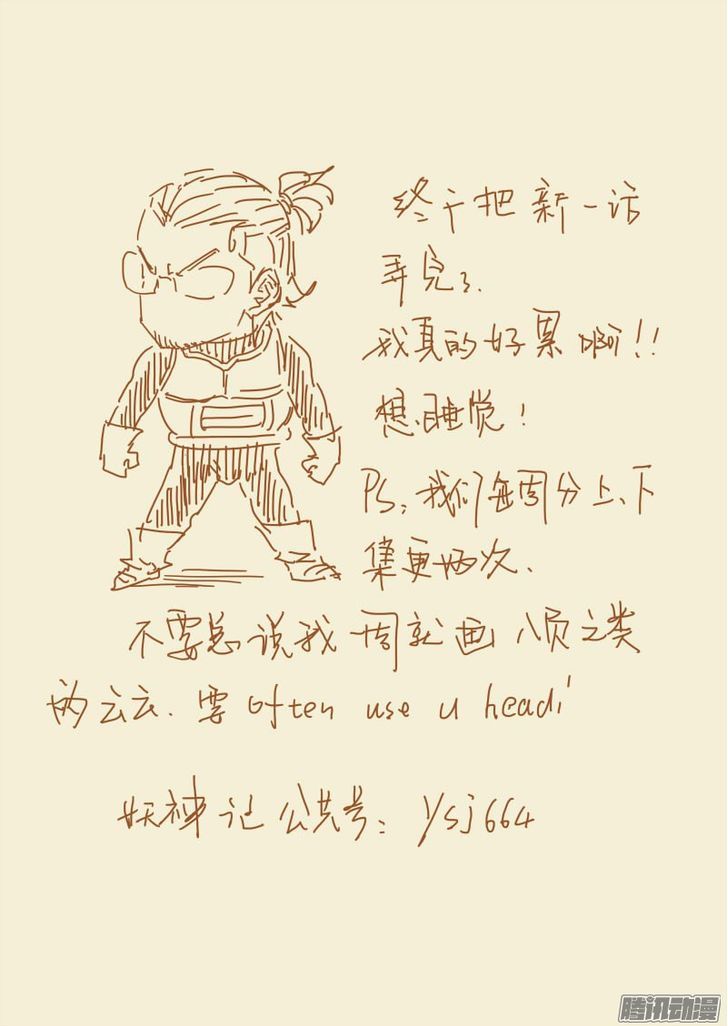 终于把新一话
弄完了.
我真的好累啊!!
想睡觉!
PS,我们每周分上、下
集更两次.
不要总说我一周就画八页之类
的云云.要often use u head!
妖神记公共号:ysj664
腾讯动漫